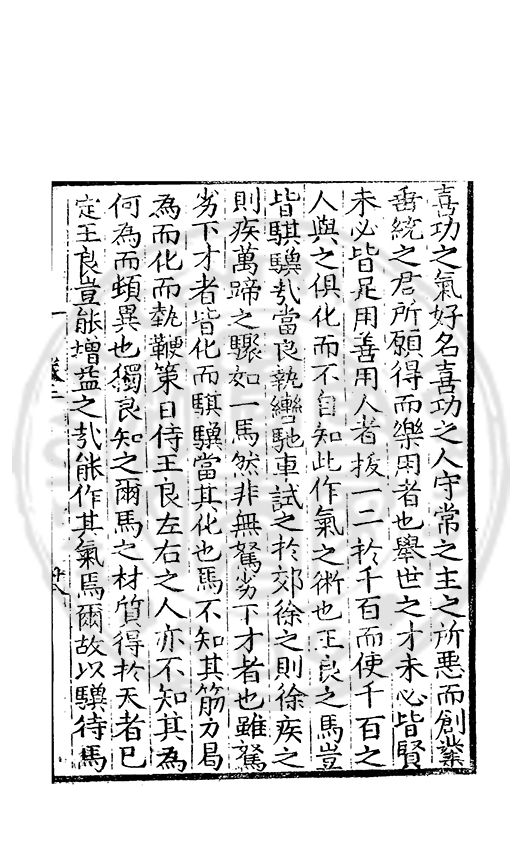 喜功之氣好名喜功之人守常之主之所惡而創業
垂統之君所願得而樂用者也舉世之才未必皆賢
未必皆足用善用人者拔一二於千百而使千百之
人與之俱化而不自知此作氣之術也王良之馬豈
皆騏驥㢤當良執轡馳車試之於郊徐之則徐疾之
則疾萬蹄之驟如一馬然非無駑劣下才者也雖駑
劣下才者皆化而騏驥當其化也馬不知其筋力曷
為而化而執鞭策日侍王良左右之人亦不知其為
何為而頓異也獨良知之爾馬之材質得於天者已
定王良豈能增益之㢤能作其氣焉爾故以驥待馬
卷二